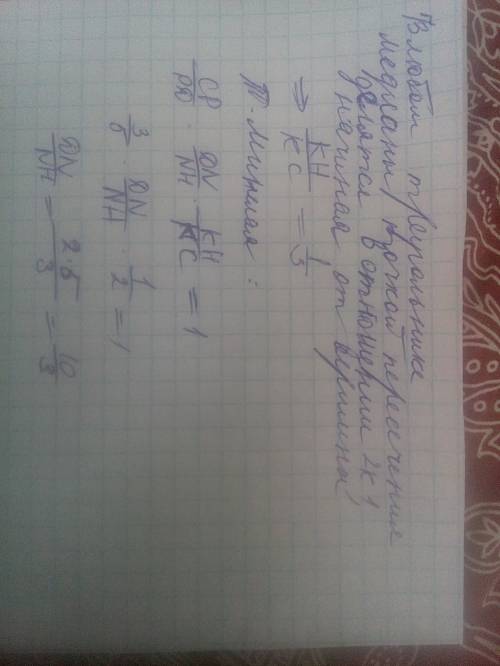 В любом треугольнике
медианы точкой пересечения
делятся в отношении 2 к 1,
начиная от вершины
⇒ KH/KC = 1/3
Т. Минелая:
CP/PD · DN/NH · KH/KC = 1
3/5 · DN/NH · 1/2 = 1
DN/NH = 2·5/3 = 10/3